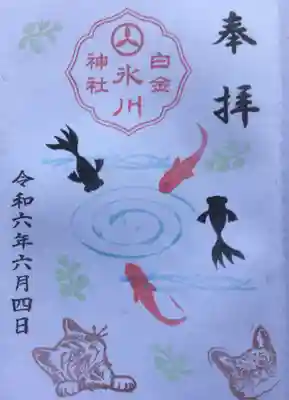 奉拝
白金
氷川
神社
令和六年六月四日